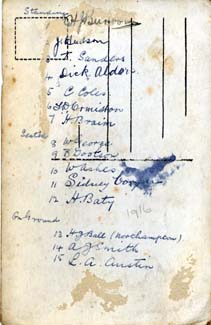 Standing
H Burrows
J Hudson
3 F. Sanders
4 Dick Aldon
5 C Coles
6 Ormiston
7 H Braim
Seated
8 W George
9 Crolson
10 W Ashes
11 Sidney
12 H. Baty
On Ground
1916
13 H J Ball (Northampton)
14 A J Smith
15 L. A. Austin